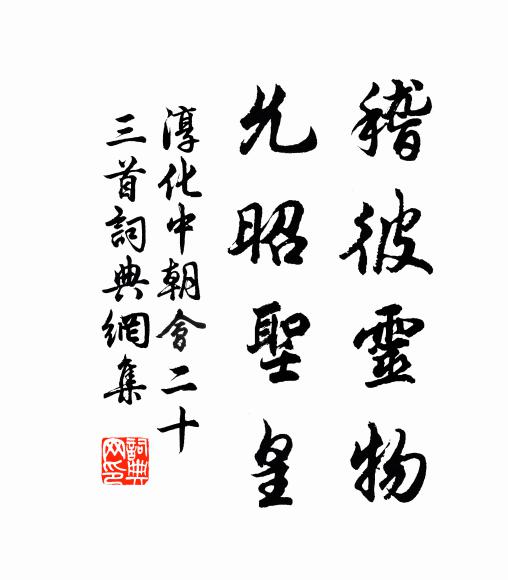 稽彼靈物
允昭聖皇
淳化中朝會二十
三首詞典網集
詞典
网印